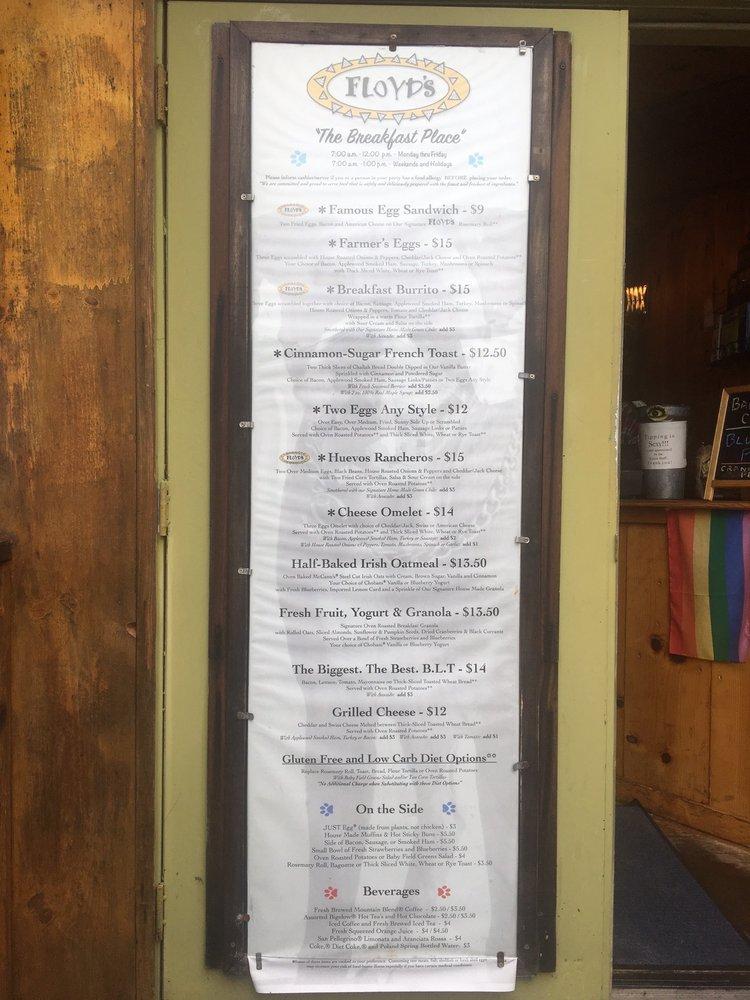 FLOYD'S
"The Breakfast Place"
7:00 a.m. - 12:00 p.m. - Monday thru Friday
7:00 a.m. - 1:00 p.m. - Weekends and Holidays
Please inform cashier/server if you or a person in your party has a food allergy BEFORE placing your order.
"We are committed and proud to serve food that is safely and deliciously prepared with the finest and freshest of ingredients."
FLOYD'S * Famous Egg Sandwich - $9
Two Fried Eggs, Bacon and American Cheese on Our Signature FLOYD'S Rosemary Roll**
* Farmer's Eggs - $15
Three Eggs scrambled with House Roasted Onions & Peppers, Cheddar/Jack Cheese and Oven Roasted Potatoes**
Your Choice of Bacon, Applewood Smoked Ham, Sausage, Turkey, Mushrooms or Spinach
with Thick Sliced White, Wheat or Rye Toast**
FLOYD'S * Breakfast Burrito - $15
Three Eggs scrambled together with choice of Bacon, Sausage, Applewood Smoked Ham, Turkey, Mushrooms or Spinach
House Roasted Onions & Peppers, Tomato and Cheddar/Jack Cheese
Wrapped in a warm Flour Tortilla**
with Sour Cream and Salsa on the side
Smothered with Our Signature Home Made Green Chile: add $3
With Avocado: add $3
* Cinnamon-Sugar French Toast - $12.50
Two Thick Slices of Challah Bread Double Dipped in Our Vanilla Batter
Sprinkled with Cinnamon and Powdered Sugar
Choice of Bacon, Applewood Smoked Ham, Sausage Links/Patties or Two Eggs Any Style
With Fresh Seasonal Berries: add $3.50
With 2 oz. 100% Real Maple Syrup: add $2.50
* Two Eggs Any Style - $12
Over Easy, Over Medium, Fried, Sunny Side Up or Scrambled
Choice of Bacon, Applewood Smoked Ham, Sausage Links or Patties
Served with Oven Roasted Potatoes** and Thick Sliced White, Wheat or Rye Toast**
FLOYD'S * Huevos Rancheros - $15
Two Over Medium Eggs, Black Beans, House Roasted Onions & Peppers and Cheddar/Jack Cheese
with Two Fried Corn Tortillas, Salsa & Sour Cream on the side
Served with Oven Roasted Potatoes**
Smothered with our Signature Home Made Green Chile: add $3
With Avocado: add $3
* Cheese Omelet - $14
Three Eggs Omelet with choice of Cheddar/Jack, Swiss or American Cheese
Served with Oven Roasted Potatoes** and Thick Sliced White, Wheat or Rye Toast**
With Bacon, Applewood Smoked Ham, Turkey or Sausage: add $2
With House Roasted Onions & Peppers, Tomato, Mushrooms, Spinach or Garlic: add $1
Half-Baked Irish Oatmeal - $13.50
Oven Baked McCann's® Steel Cut Irish Oats with Cream, Brown Sugar, Vanilla and Cinnamon
Your Choice of Chobani® Vanilla or Blueberry Yogurt
with Fresh Blueberries, Imported Lemon Curd and a Sprinkle of Our Signature House Made Granola
Fresh Fruit, Yogurt & Granola - $13.50
Signature Oven Roasted Breakfast Granola
with Rolled Oats, Sliced Almonds, Sunflower & Pumpkin Seeds, Dried Cranberries & Black Currants
Served Over a Bowl of Fresh Strawberries and Blueberries
Your choice of Chobani® Vanilla or Blueberry Yogurt
The Biggest. The Best. B.L.T - $14
Bacon, Lettuce, Tomato, Mayonnaise on Thick-Sliced Toasted Wheat Bread**
Served with Oven Roasted Potatoes**
With Avocado: add $3
Grilled Cheese - $12
Cheddar and Swiss Cheese Melted between Thick-Sliced Toasted Wheat Bread**
Served with Oven Roasted Potatoes**
With Applewood Smoked Ham, Turkey or Bacon: add $3 With Avocado: add $3 With Tomato: add $1
Gluten Free and Low Carb Diet Options**
Replace Rosemary Roll, Toast, Bread, Flour Tortilla or Oven Roasted Potatoes
With Baby Field Greens Salad and/or Two Corn Tortillas
"No Additional Charge when Substituting with these Diet Options"
On the Side
JUST Egg® (made from plants, not chicken) - $3
House Made Muffins & Hot Sticky Buns - $5.50
Side of Bacon, Sausage, or Smoked Ham - $5.50
Small Bowl of Fresh Strawberries and Blueberries - $5.50
Oven Roasted Potatoes or Baby Field Greens Salad - $4
Rosemary Roll, Baguette or Thick Sliced White, Wheat or Rye Toast - $3.50
Beverages
Fresh Brewed Mountain Blend® Coffee - $2.50 / $3.50
Assorted Bigelow® Hot Tea's and Hot Chocolate - $2.50 / $3.50
Iced Coffee and Fresh Brewed Iced Tea - $4
Fresh Squeezed Orange Juice - $4 / $4.50
San Pellegrino® Limonata and Aranciata Rossa - $4
Coke,® Diet Coke,® and Poland Spring Bottled Water: $3
Tipping is
Sexy!!!